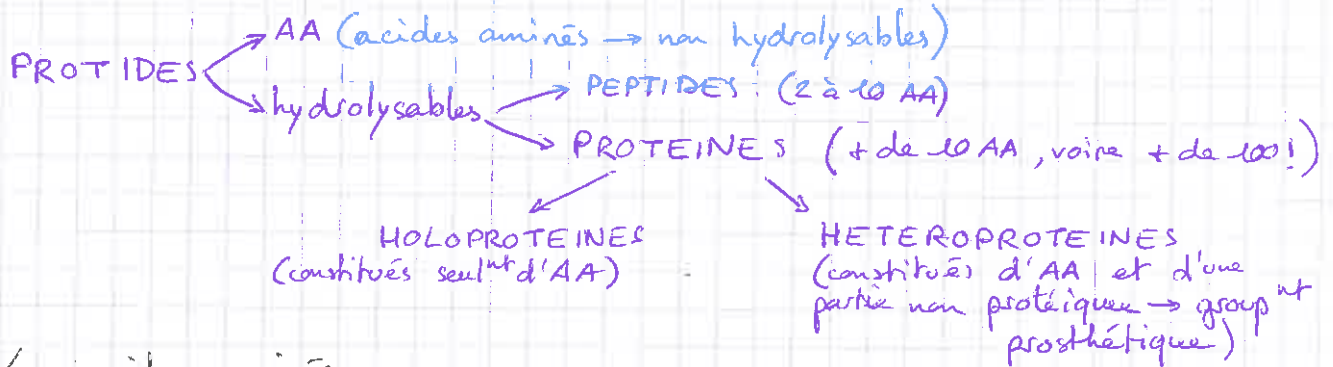 AA (acides aminés → non hydrolysables)
PROTIDES
hydrolysables
PEPTIDES : (2 à 10 AA)
PROTEINES (+ de 10 AA, voire + de 100!)
HOLOPROTEINES
(constitués seulnt d'AA)
HETEROPROTEINES
(constitués d'AA et d'une
partie non protéique → groupnt
prosthétique)